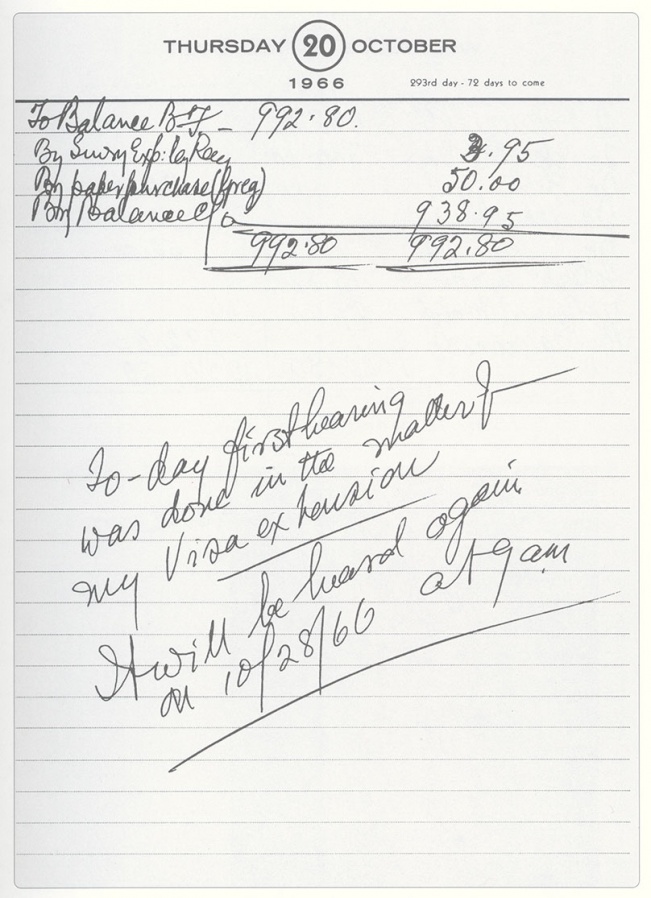 THURSDAY 20 OCTOBER
1966 293rd day - 72 days to come
To Balance B.F. — 992.80.
By Exp: by Ray 3.95
By paper purchase 50.00
By Balance C/o 938.95
992.80 992.80
To-day first hearing
was done in the matter of
my Visa extension
It will be heard again
on 10/28/66 at 9 am